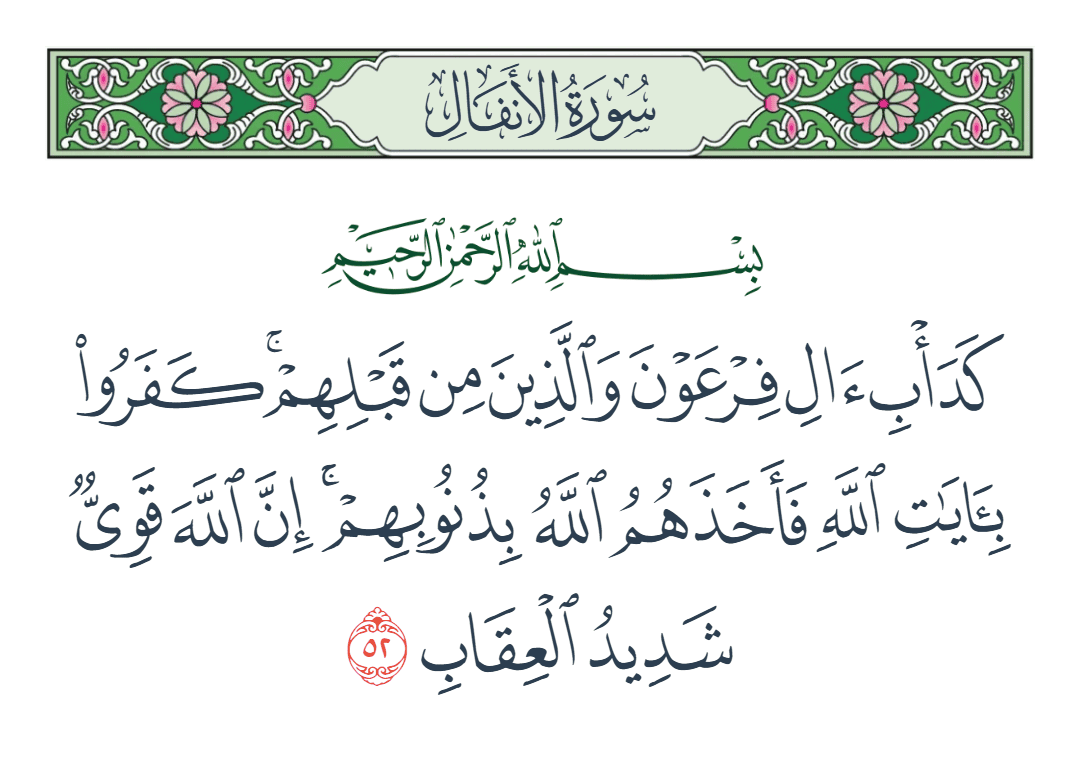 سُورَةُ الأَنفَالِ
بِسْمِ ٱللَّهِ ٱلرَّحْمَٰنِ ٱلرَّحِيمِ
كَدَأْبِ ءَالِ فِرْعَوْنَ وَٱلَّذِينَ مِن قَبْلِهِمْ ۚ كَفَرُوا۟
بِـَٔايَـٰتِ ٱللَّهِ فَأَخَذَهُمُ ٱللَّهُ بِذُنُوبِهِمْ ۚ إِنَّ ٱللَّهَ قَوِىٌّ
شَدِيدُ ٱلْعِقَابِ ٥٢